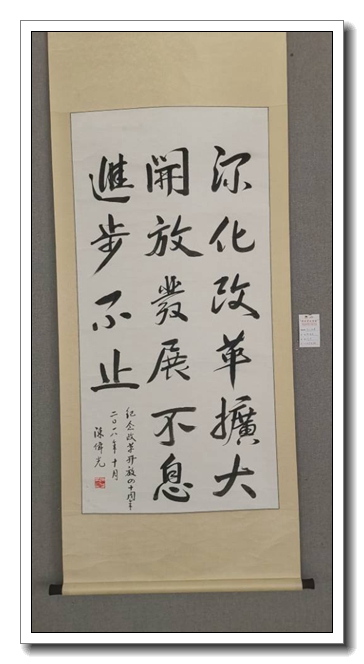 深化改革擴大
開放發展不息
進步不止
纪念改革开放四十周年
二〇一八年十月
陳偉光